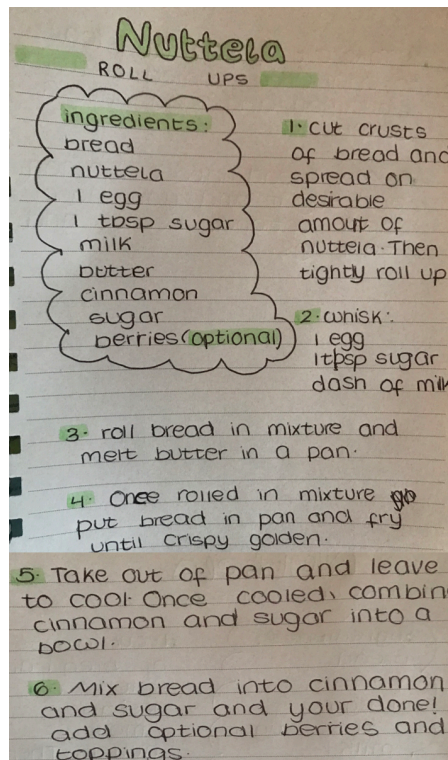 Nuttela
ROLL UPS
ingredients:
bread
nuttela
1 egg
1 tbsp sugar
milk
butter
cinnamon
sugar
berries (optional)
1. cut crusts
of bread and
spread on
desirable
amout of
nuttela. Then
tightly roll up
2. whisk:
1 egg
1tbsp sugar
dash of milk
3. roll bread in mixture and
melt butter in a pan.
4. Once rolled in mixture
put bread in pan and fry
until crispy golden.
5. Take out of pan and leave
to cool. Once cooled, combin
cinnamon and sugar into a
bowl.
6. Mix bread into cinnamon
and sugar and your done!
add optional berries and
toppings.